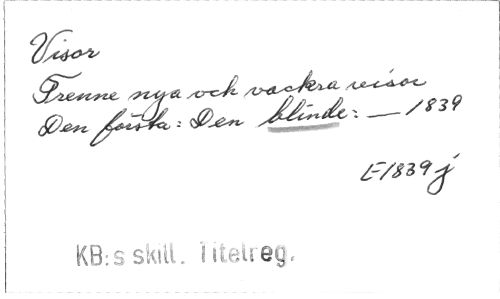 Visor
Trenne nya och vackra visor
Den första: Den blinde: — 1839
E1839 j
KB:s skill. Titelreg.